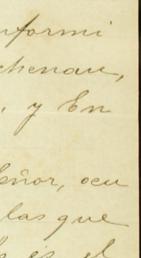 nformi
chenau,
, y En
eñor, ocu
las que